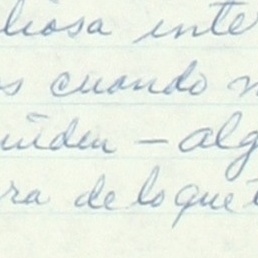 liosa inte
s cuando n
uiden – alg
ra de lo que t